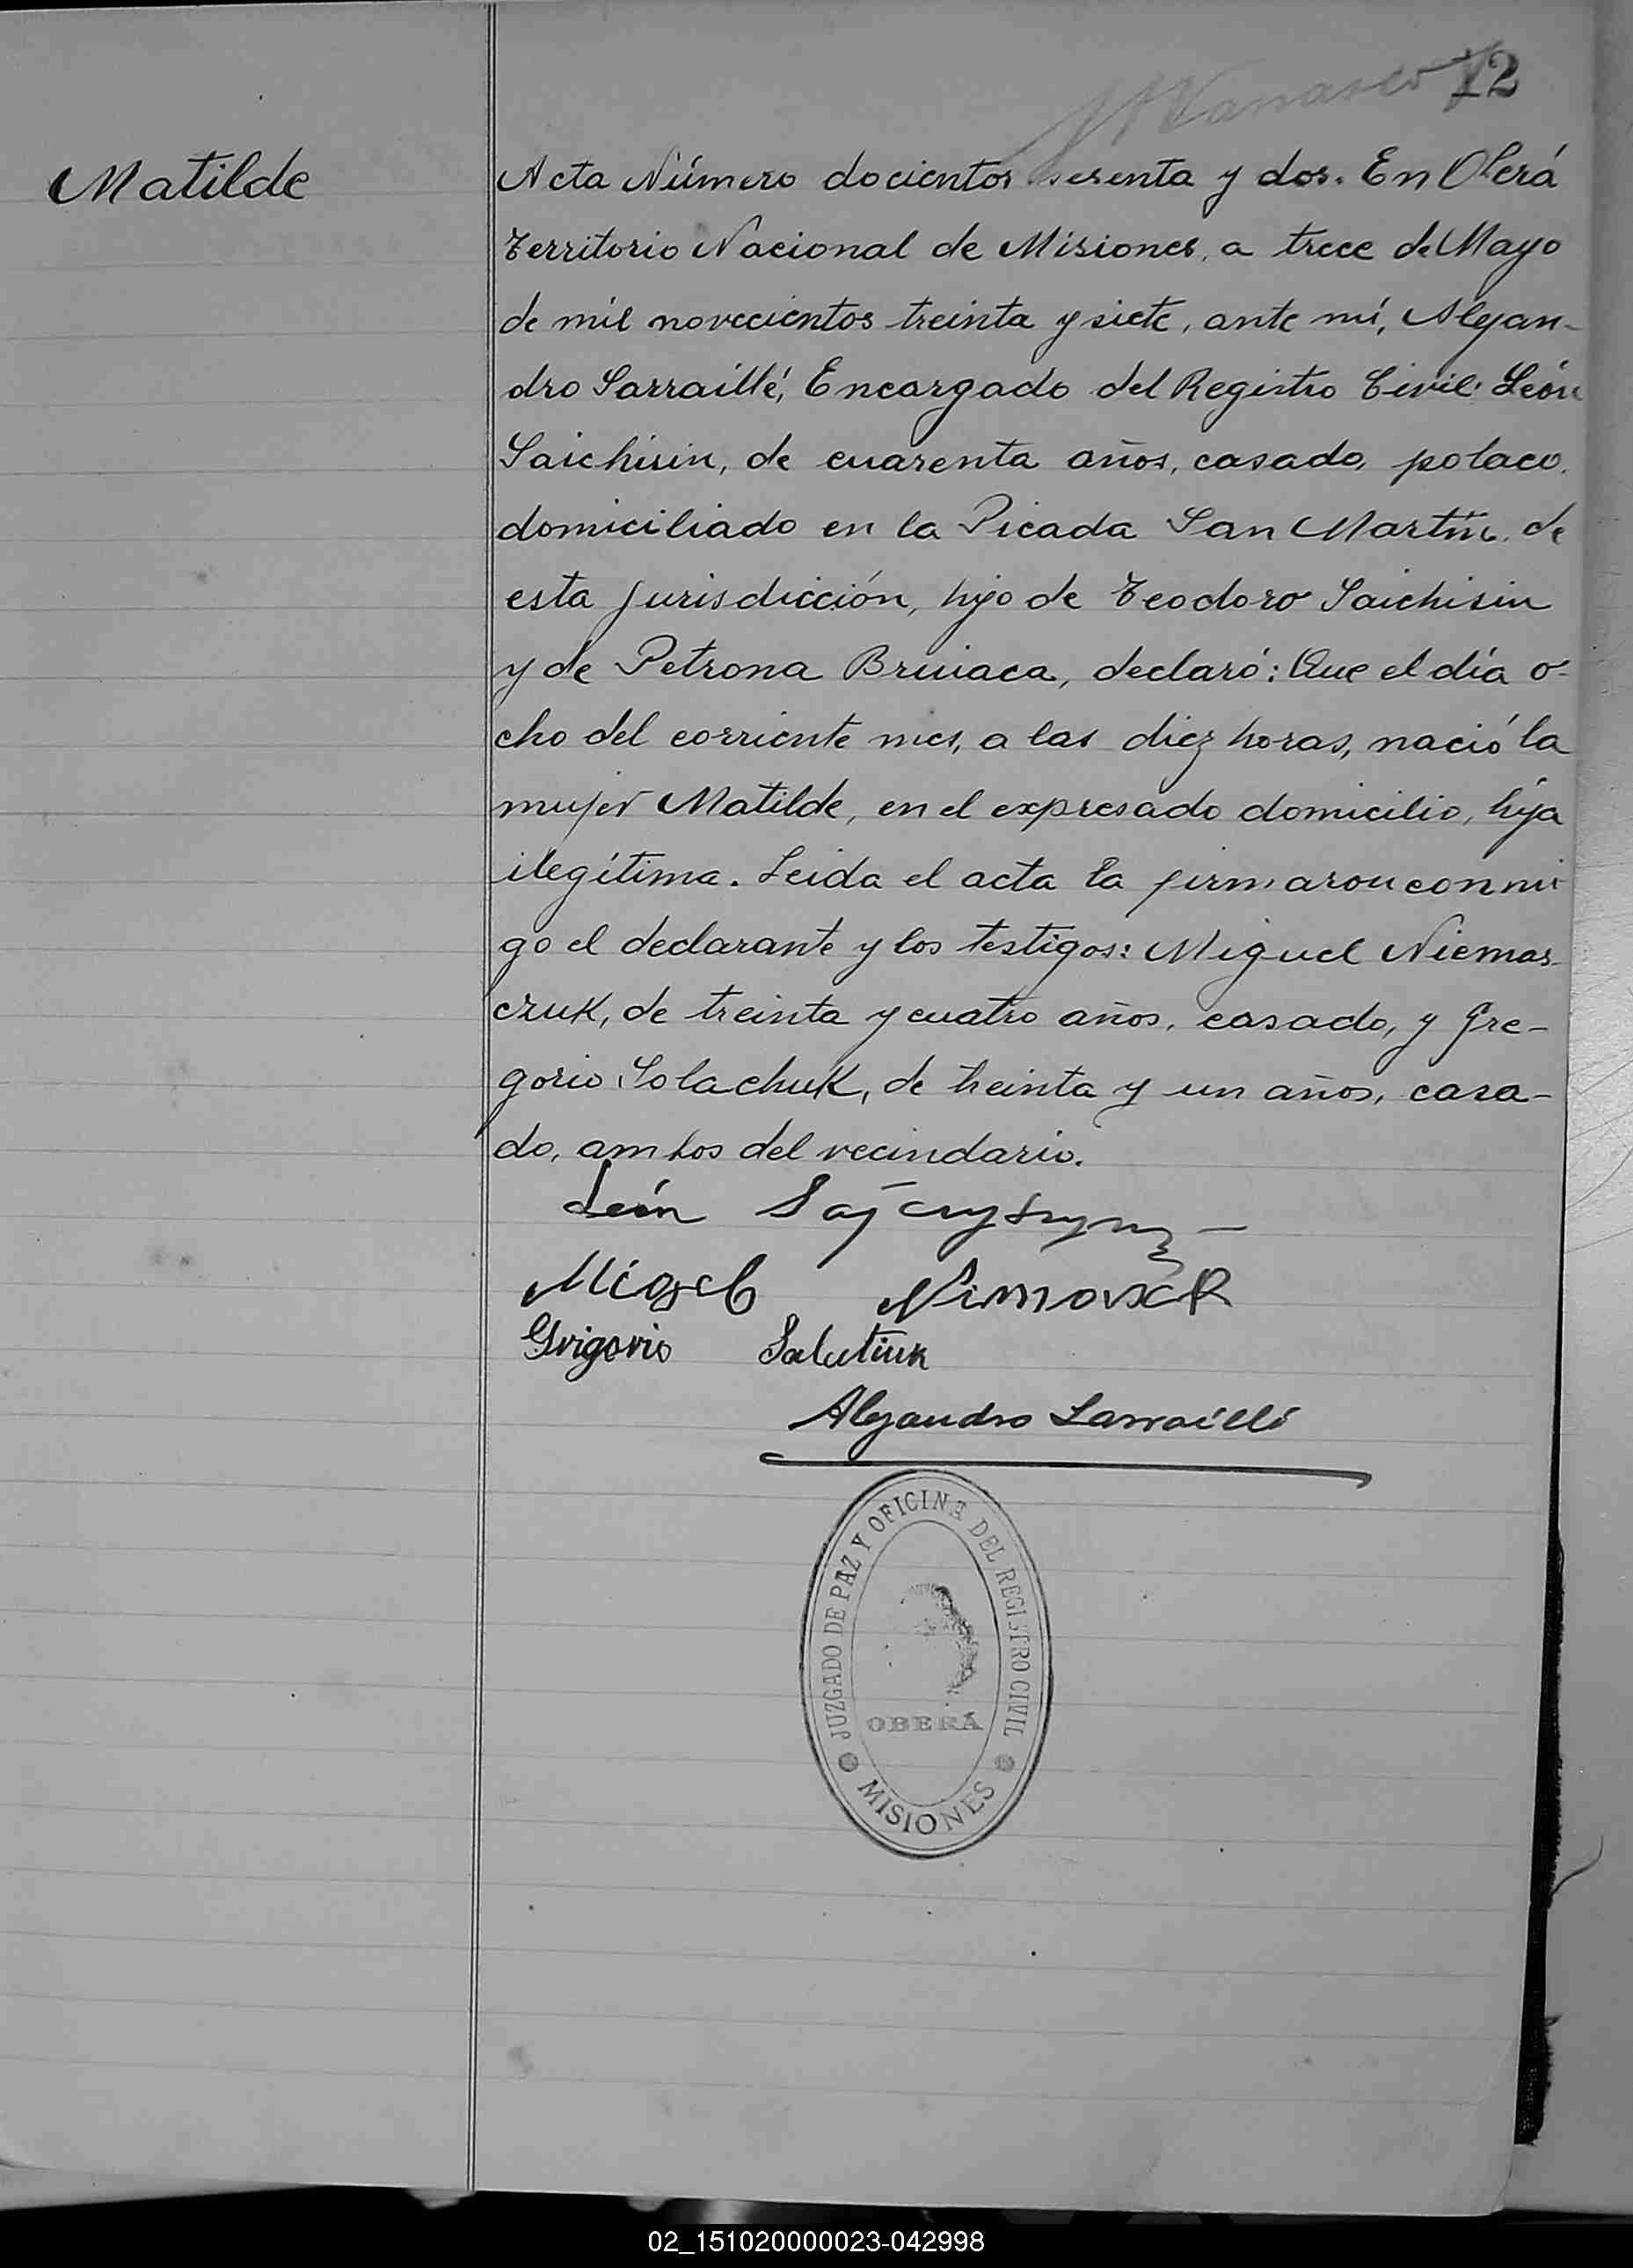 12
Matilde
Acta Número docientos sesenta y dos. En Oberá
Territorio Nacional de Misiones, a trece de Mayo
de mil novecientos treinta y siete, ante mí, Alejan-
dro Sarraillé, Encargado del Registro Civil: León
Saichisin, de cuarenta años, casado, polaco,
domiciliado en la Picada San Martín, de
esta jurisdicción, hijo de Teodoro Saichisin
y de Petrona Bruiaca, declaró: Que el día o-
cho del corriente mes, a las diez horas, nació la
mujer Matilde, en el expresado domicilio, hija
ilegítima. Leida el acta la firmaron conmi
go el declarante y los testigos: Miguel Niemas-
czuk, de treinta y cuatro años, casado, y Gre-
gorio Solachuk, de treinta y un años, casa-
do, ambos del vecindario.
León
Grigorio Salutiuk
Alejandro Sarraillé
JUZGADO DE PAZ Y OFICINA DEL REGISTRO CIVIL
OBERÁ
MISIONES
02_151020000023-042998